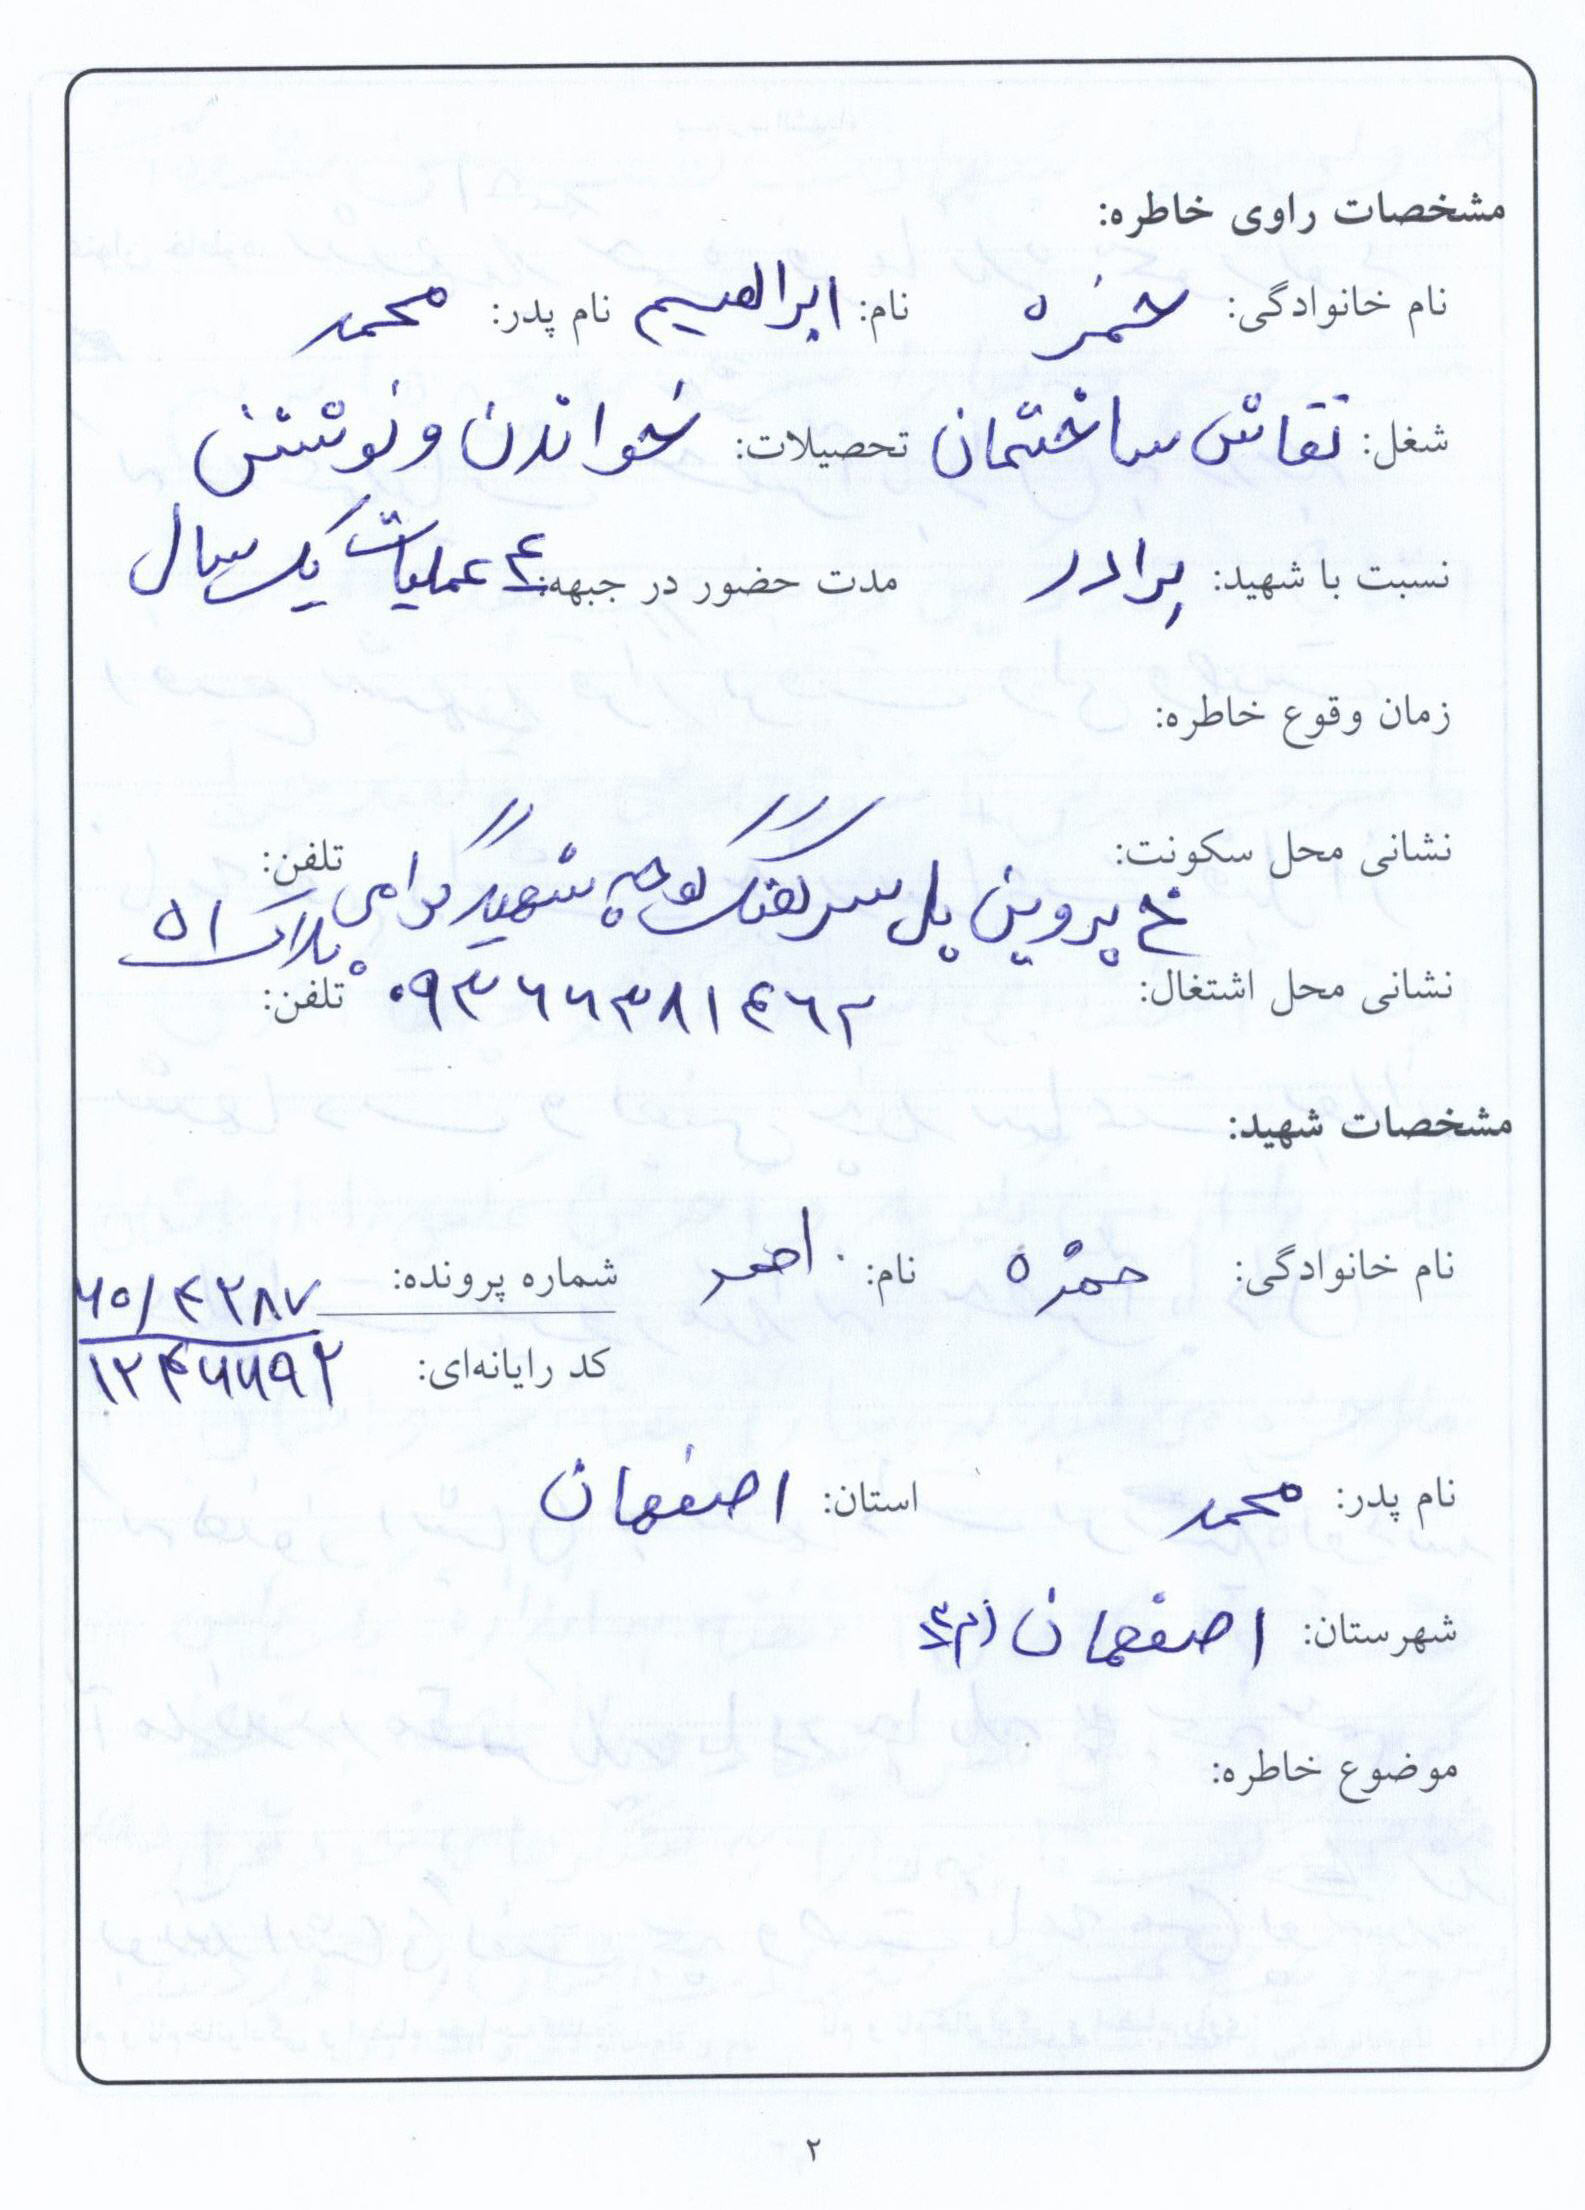 مشخصات راوی خاطره:
نام خانوادگی: حمزه نام: ابراهیم نام پدر: محمد
شغل: نقاش ساختمان تحصیلات: خواندن و نوشتن
نسبت با شهید: برادر مدت حضور در جبهه: ۴ عملیات یک سال
زمان وقوع خاطره:
نشانی محل سکونت: تلفن:
خ پروین پل سرهنگ کوچه شهید گرامی پلاک ۵۱
نشانی محل اشتغال: ۰۹۳۶۶۳۸۱۴۶۲ تلفن:
مشخصات شهید:
نام خانوادگی: حمزه نام: احمد شماره پرونده: ۶۵/۴۲۸۷
کد رایانه‌ای: ۱۲۴۶۶۹۲
نام پدر: محمد استان: اصفهان
شهرستان: اصفهان
موضوع خاطره:
۲